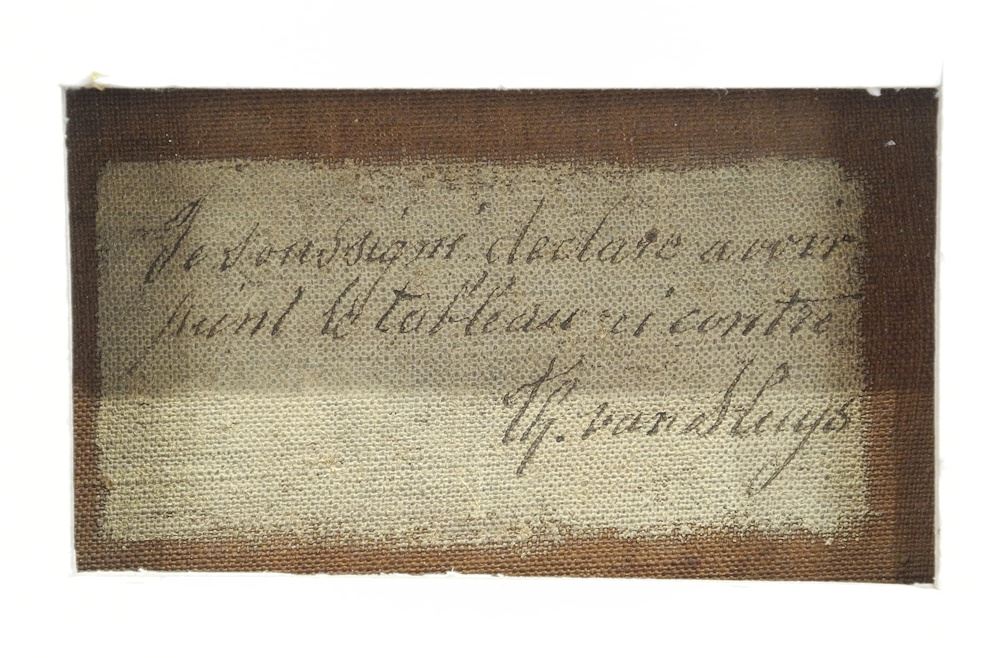 Je soussigné declare avoir
peint le tableau ci contre
Th. van Sluys